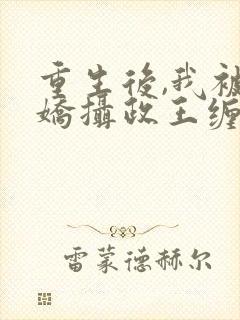 重生後,我被
嬌攝政王缠
雷蒙德赫尔